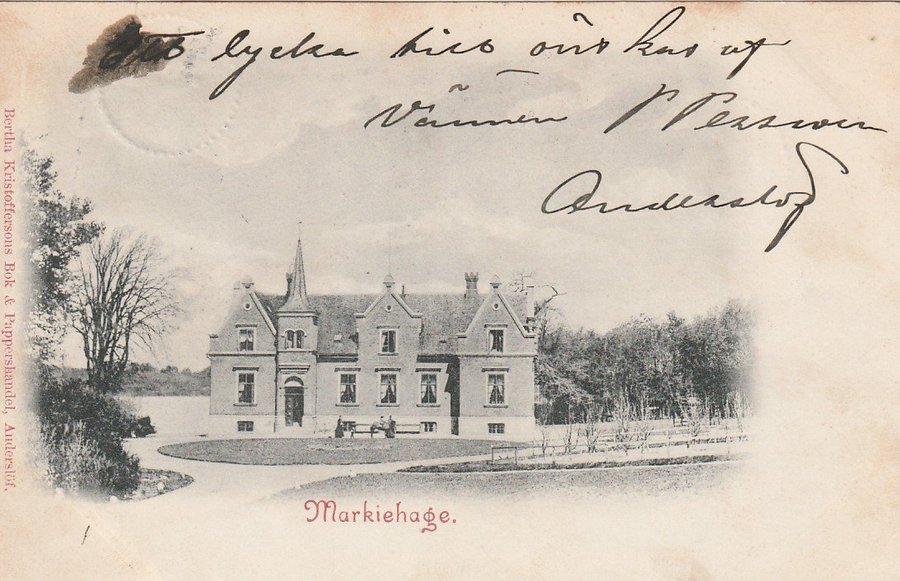 lycka till önskas af
Vännen P Persson
Anderslöf
Bertha Kristoffersons Bok & Pappershandel, Anderslöf.
Markiehage.